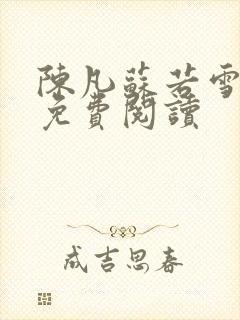 陳凡蘇若雪
免費閱讀
成吉思春